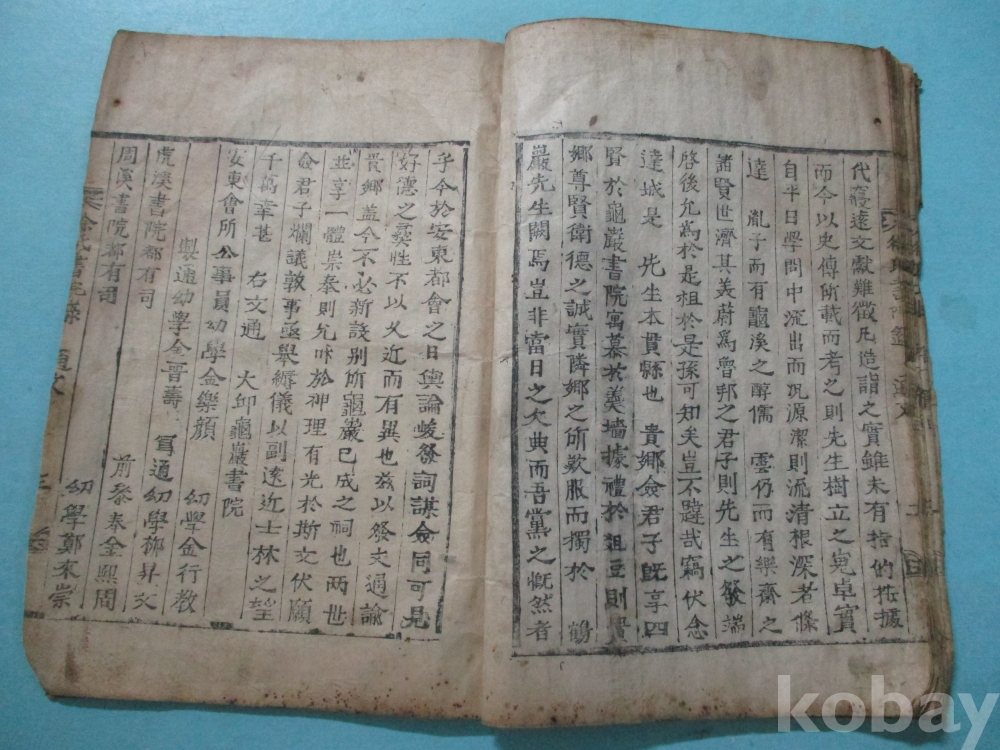 代寢遠文獻難徵凡造詣之實雖未有指的㧣據
而今以史傳所載而考之則先生樹立之宏卓實
自平日學問中流出而況源潔則流清根深者條
達 胤子而有龜溪之醇儒 雲仍而有樂齋之
諸賢世濟其美蔚爲魯邦之君子則先生之發端
啓後允爲於是祖於是孫可知矣豈不韙哉竊伏念
達城是 先生本貫縣也 貴鄉僉君子旣享四
賢於龜巖書院寓慕於羹墻據禮於俎豆則貴
鄉尊賢衛德之誠實隣鄉之所歎服而獨於 鶴
嚴先生闕焉豈非當日之欠典而吾黨之慨然者
乎今於安東都會之日輿論峻發詞謀僉同可見
好德之彛性不以久近而有異也玆以發文通諭
貴鄉盖今不必新設别所龜巖已成之祠也两世
並享一體崇奉則允叶於神理有光於斯文伏願
僉君子爛議敦事亟擧縟儀以副遠近士林之望
千萬幸甚 右文通 大邱龜巖書院
安東會所公事員幼學金樂顔 幼學金行教
製通幼學金晋壽 寫通幼學柳昇文
虎溪書院都有司 前參奉金熙周
周溪書院都有司 幼學鄭來崇
通文
三
kobay